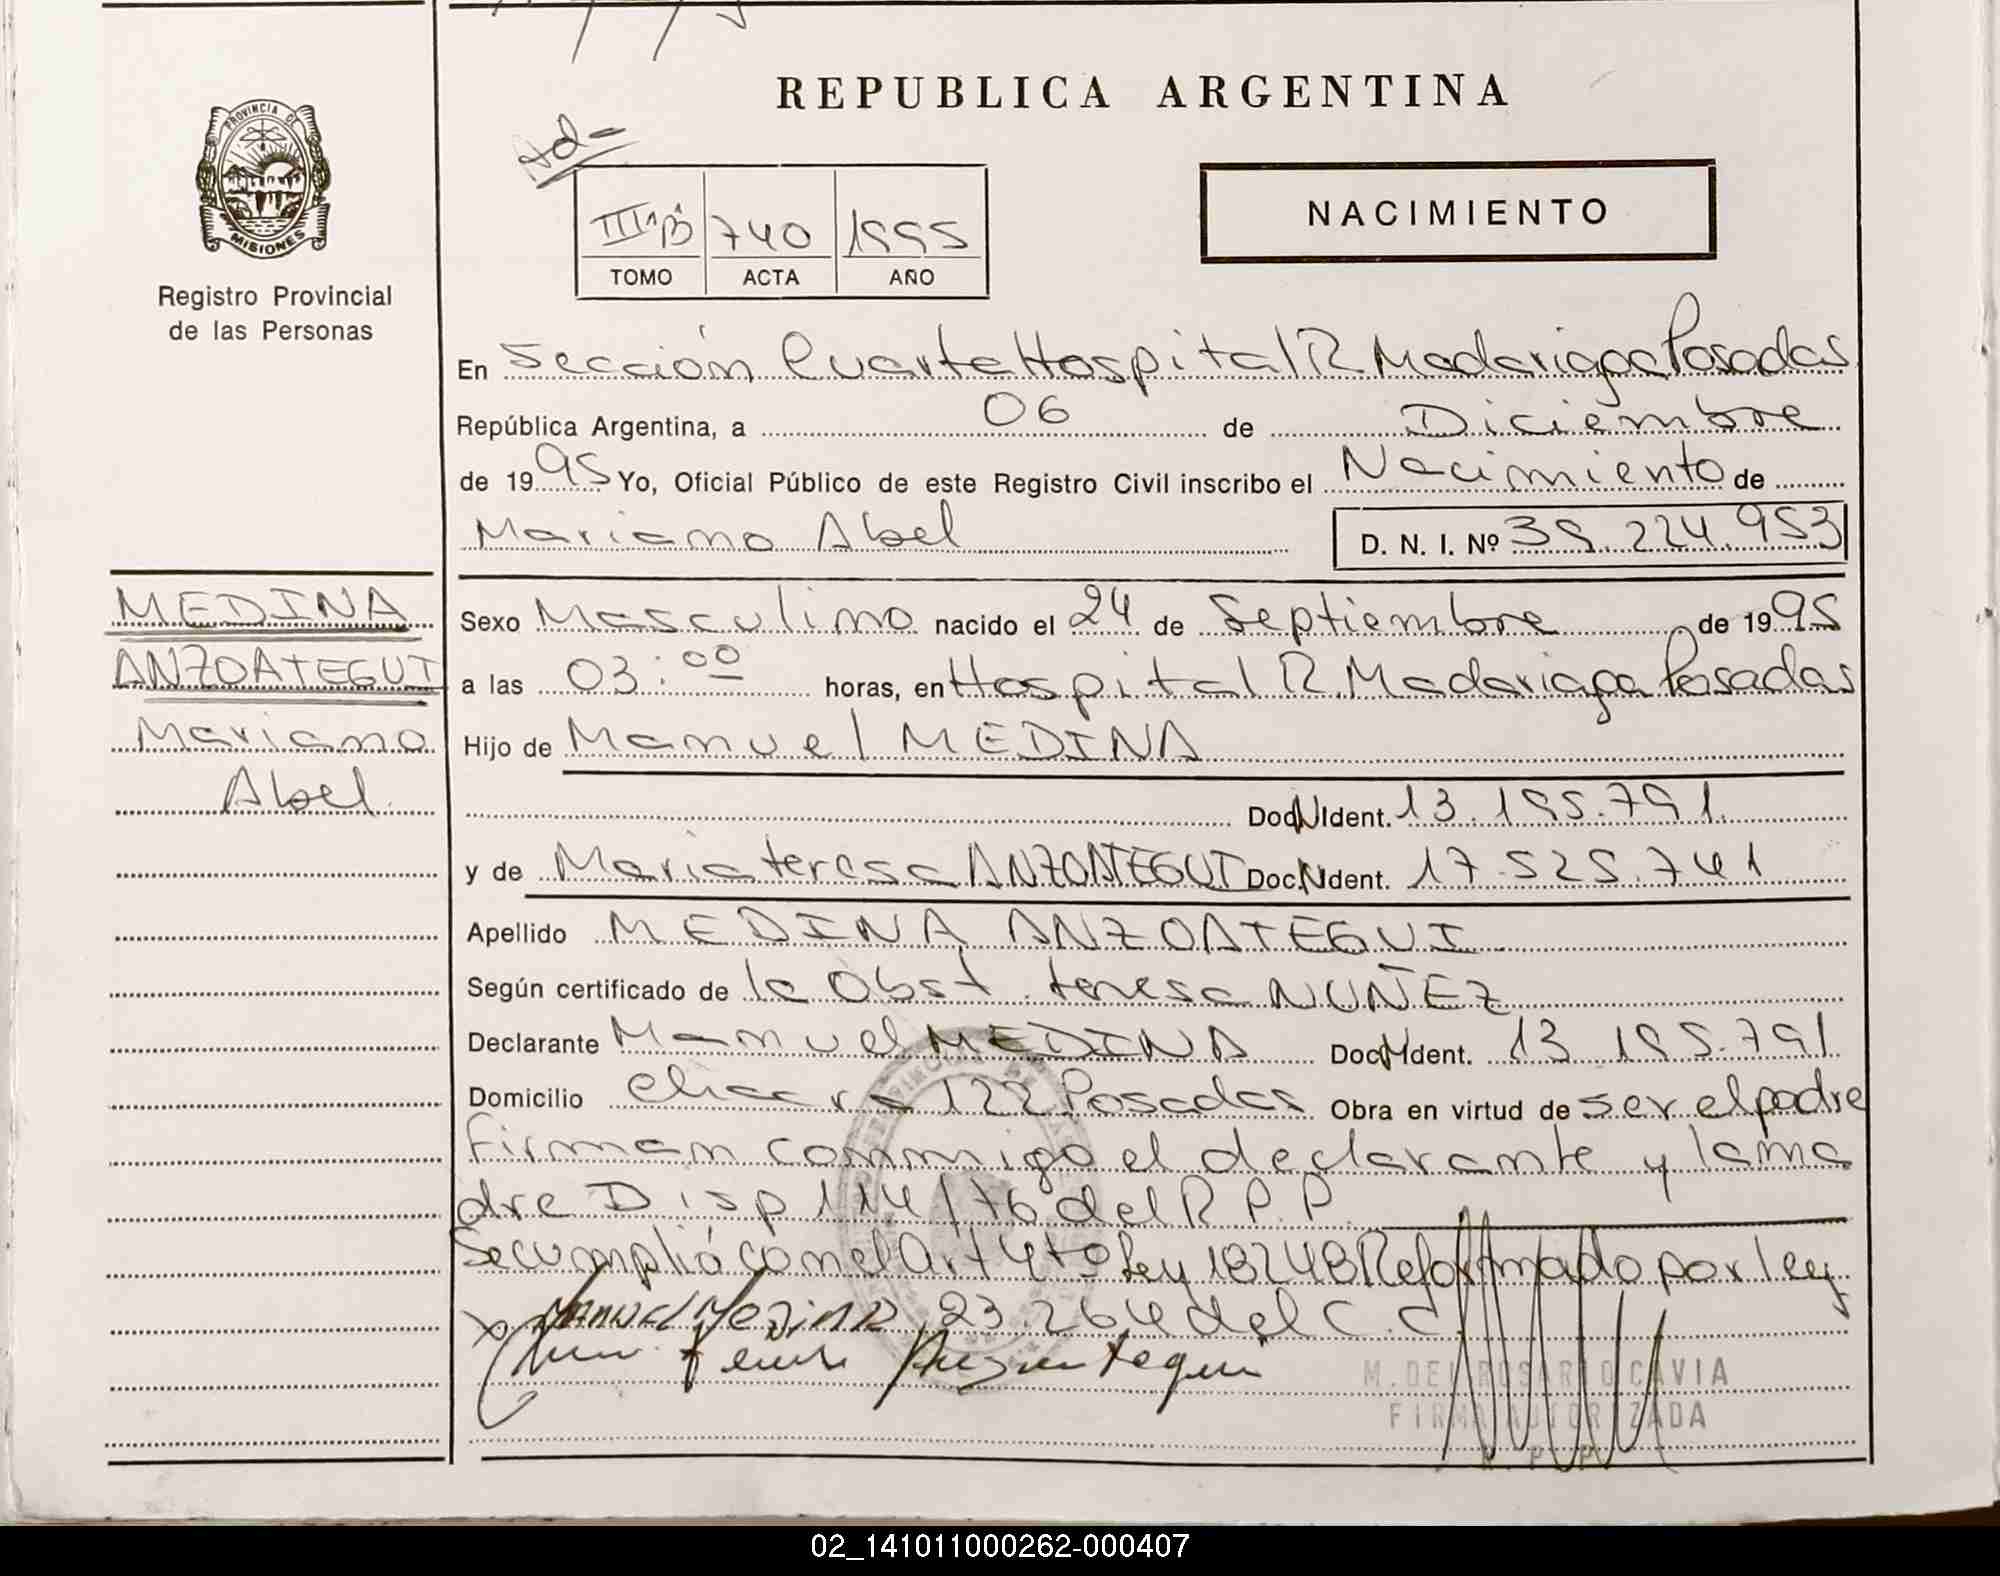 REPUBLICA ARGENTINA
PROVINCIA DE
MISIONES
Registro Provincial
de las Personas
III"B" 740 1995
TOMO ACTA AÑO
NACIMIENTO
En Sección Cuarta Hospital R Madariaga Posadas
República Argentina, a 06 de Diciembre
de 1995 Yo, Oficial Público de este Registro Civil inscribo el Nacimiento de
Mariano Abel D. N. I. Nº 39.224.953
MEDINA
ANZOATEGUI
Mariano
Abel
Sexo Masculino nacido el 24 de Septiembre de 1995
a las 03:00 horas, en Hospital R. Madariaga Posadas
Hijo de Manuel MEDINA
Doc. N Ident. 13.195.791
y de Maria teresa ANZOATEGUI Doc. N Ident. 17.525.741
Apellido MEDINA ANZOATEGUI
Según certificado de la Obst. teresa NUÑEZ
Declarante Manuel MEDINA Doc. N Ident. 13 195.791
Domicilio chacra 122 Posadas Obra en virtud de ser el padre
Firman conmigo el declarante y la ma
dre Disp 114/76 del R.P.P.
Se cumplió con el Art 4to Ley 18248 Reformado por ley
23.264 del C.C.
Manuel Medina
M. DEL ROSARIO CAVIA
FIRMA AUTORIZADA
R. P. P.
02_141011000262-000407